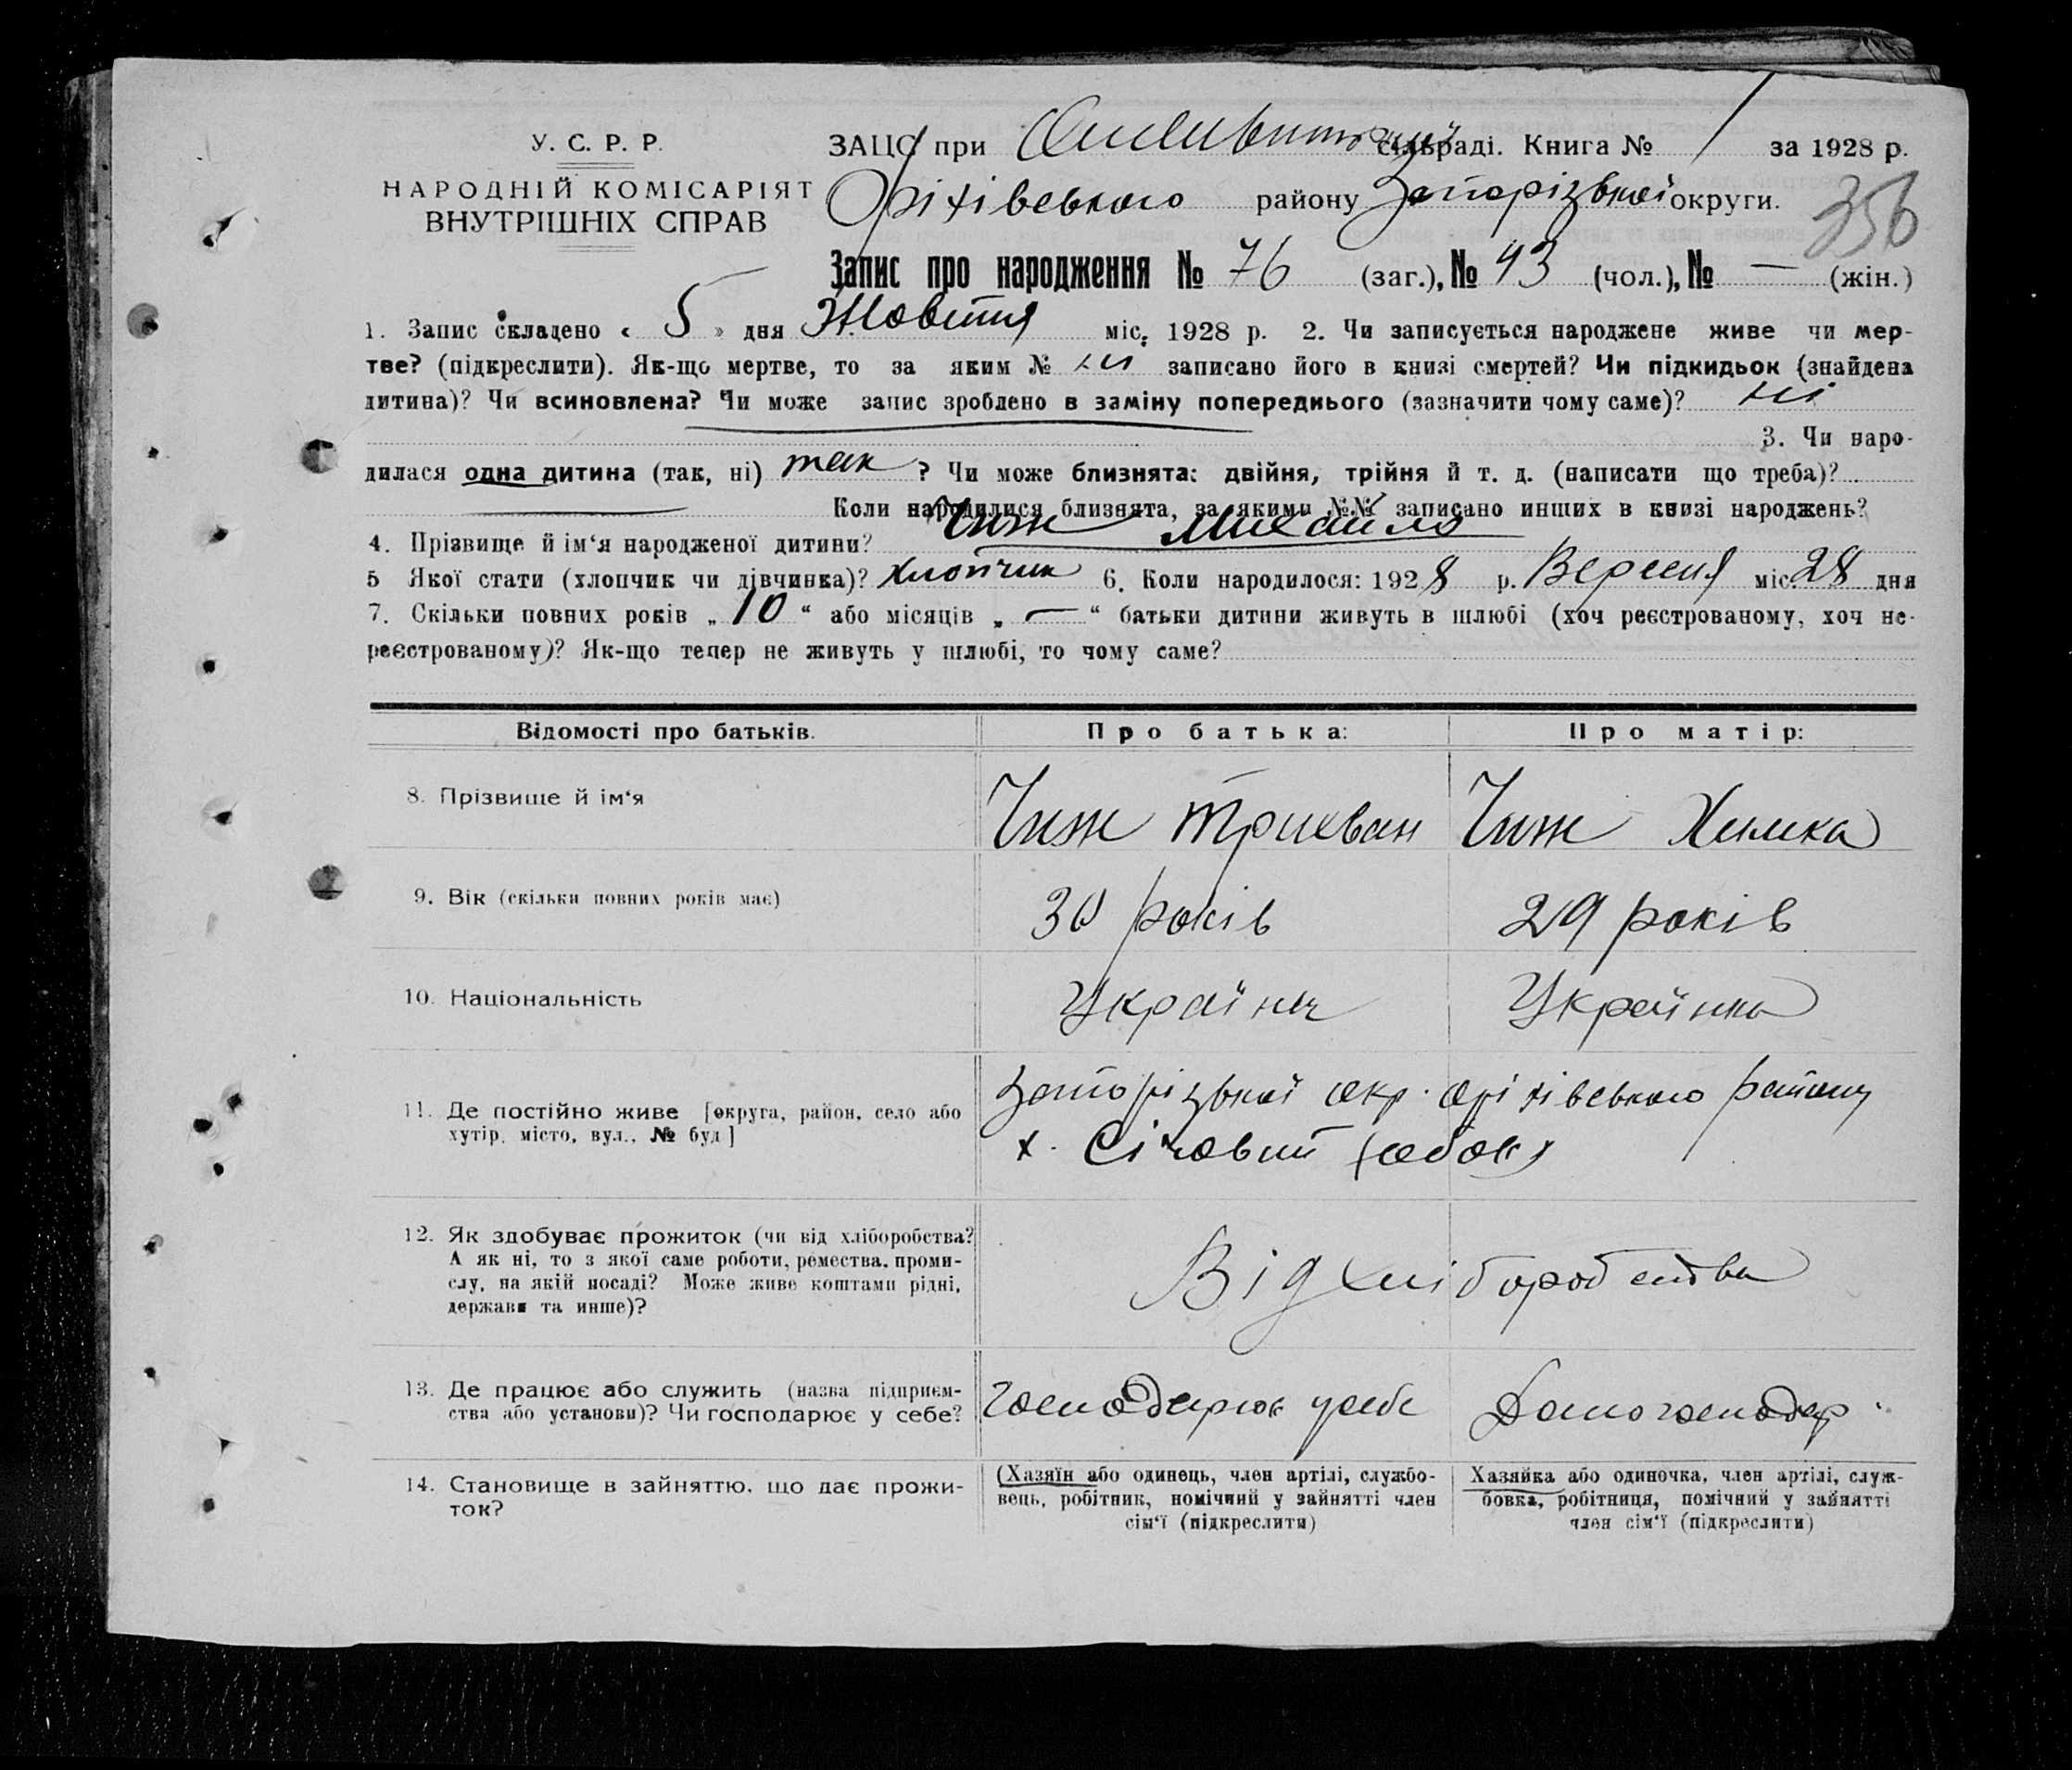 У. С. Р. Р.
НАРОДНІЙ КОМІСАРІЯТ
ВНУТРІШНІХ СПРАВ
ЗАЦС при сільраді. Книга № 1 за 1928 р.
Оріхівського району Запорізької округи.
356
Запис про народження № 76 (заг.), № 43 (чол.), № — (жін.)
1. Запис складено « 5 » дня Жовтня міс. 1928 р. 2. Чи записується народжене живе чи мер-
тве? (підкреслити). Як-що мертве, то за яким № ні записано його в книзі смертей? Чи підкидьок (знайдена
дитина)? Чи всиновлена? Чи може запис зроблено в заміну попереднього (зазначити чому саме)? ні
3. Чи наро-
дилася одна дитина (так, ні) так ? Чи може близнята: двійня, трійня й т. д. (написати що треба)?
Коли народилися близнята, за якими №№ записано инших в книзі народжень?
4. Прізвище й ім‘я народженої дитини? Чиж Михайло
5 Якої стати (хлопчик чи дівчинка)? хлопчик 6. Коли народилося: 1928 р. Вересня міс. 28 дня
7. Скільки повних років „ 10 “ або місяців „ — “ батьки дитини живуть в шлюбі (хоч реєстрованому, хоч не-
реєстрованому)? Як-що тепер не живуть у шлюбі, то чому саме?
Відомості про батьків. Про батька: Про матір:
8. Прізвище й ім‘я Чиж Трихван Чиж Химка
9. Вік (скільки повних років має) 30 років 29 років
10. Національність Українець Українка
11. Де постійно живе [округа, район, село або Запорізької окр. Оріхівського району
хутір, місто, вул., № буд] х. Січовий
12. Як здобуває прожиток (чи від хліборобства?
А як ні, то з якої саме роботи, ремества, проми-
слу, на якій посаді? Може живе коштами рідні,
держави та инше)? Від хліборобства
13. Де працює або служить (назва підприєм-
ства або установи)? Чи господарює у себе? господарює у себе Домогосподар.
14. Становище в зайняттю, що дає прожи-
ток?
(Хазяїн або одинець, член артілі, службо-
вець, робітник, помічний у зайнятті член
сім‘ї (підкреслити)
Хазяйка або одиночка, член артілі, служ-
бовка, робітниця, помічний у зайнятті
член сім‘ї (підкреслити)